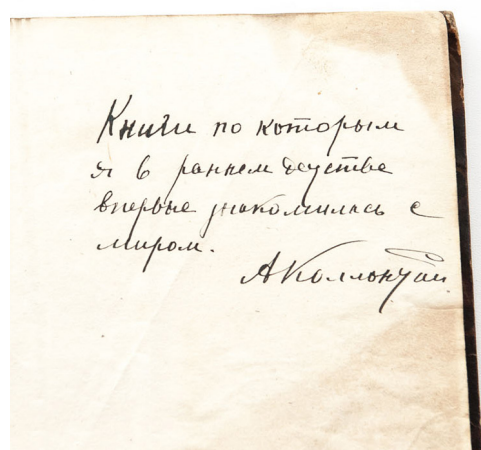 Книги по которым
я в раннем детстве
впервые знакомилась с
миром.
АКоллонтай